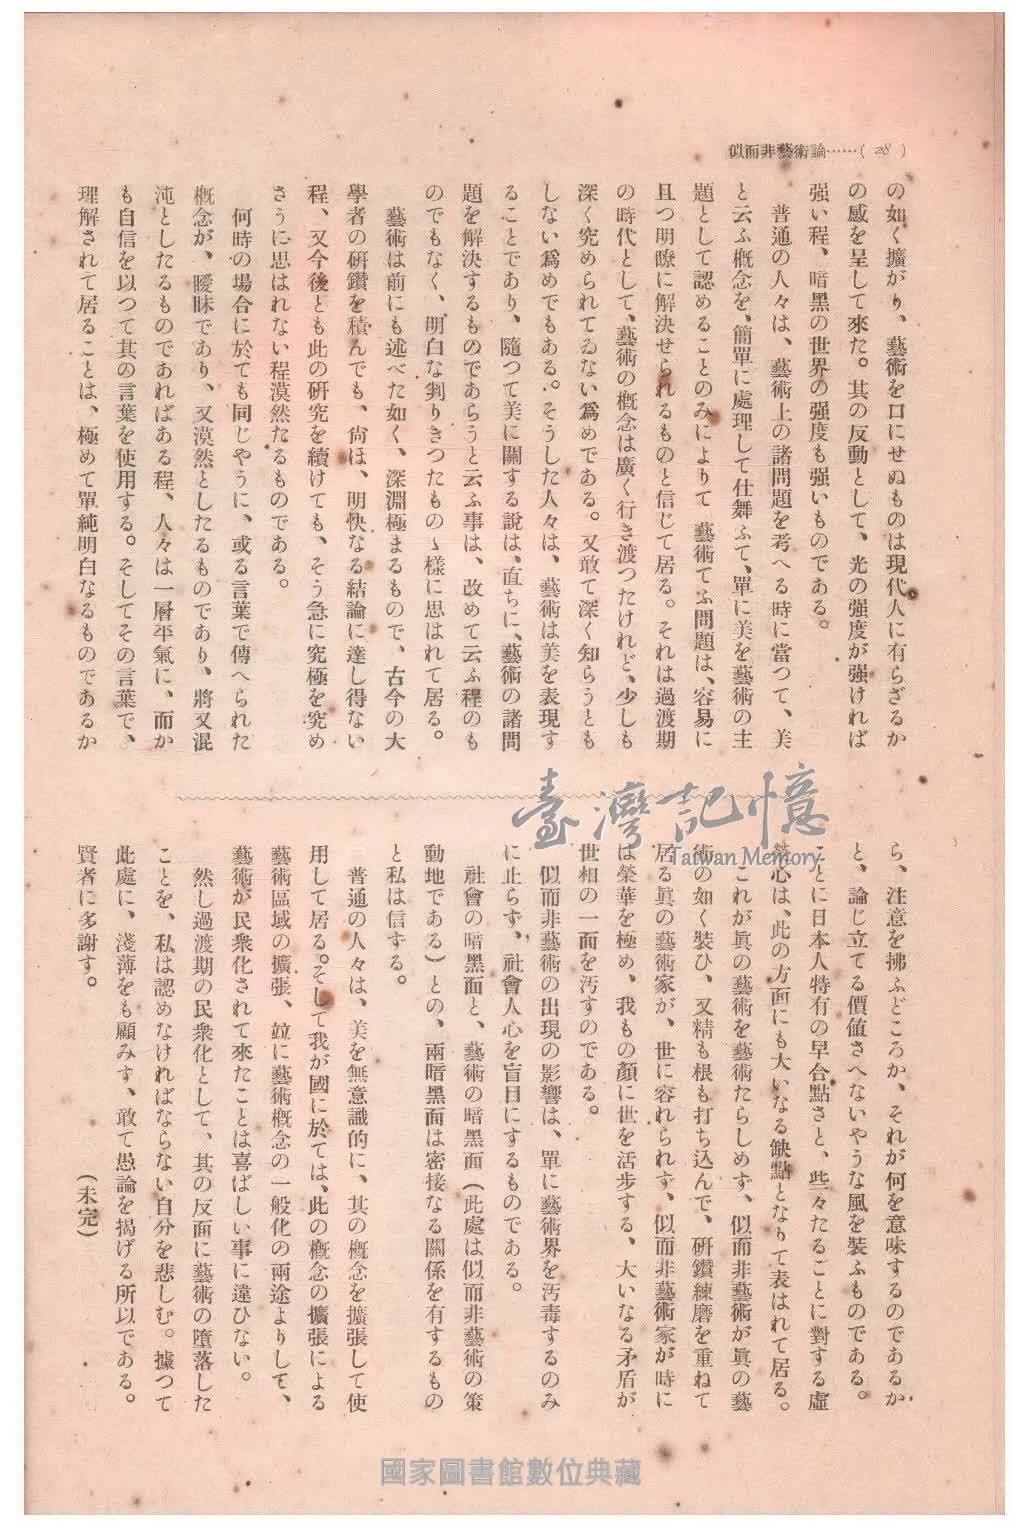 似而非藝術論……( 28 )
の如く擴がり、藝術を口にせぬものは現代人に有らざるか
の感を呈して來た。其の反動として、光の强度が强ければ
强い程、暗黑の世界の强度も强いものである。
普通の人々は、藝術上の諸問題を考へる時に當つて、美
と云ふ概念を、簡單に處理して仕舞ふて、單に美を藝術の主
題として認めることのみによりて 藝術てふ問題は、容易に
且つ明瞭に解決せられるものと信じて居る。それは過渡期
の時代として、藝術の概念は廣く行き渡つたけれど、少しも
深く究められてゐない爲めである。又敢て深く知らうとも
しない爲めでもある。そうした人々は、藝術は美を表現す
ることであり、隨つて美に關する說は、直ちに、藝術の諸問
題を解決するものであらうと云ふ事は、改めて云ふ程のも
のでもなく、明白な判りきつたものゝ樣に思はれて居る。
藝術は前にも述べた如く、深淵極まるもので、古今の大
學者の硏鑽を積んでも、尙ほ、明快なる結論に達し得ない
程、又今後とも此の硏究を續けても、そう急に究極を究め
さうに思はれない程漠然たるものである。
何時の場合に於ても同じやうに、或る言葉で傳へられた
概念が、曖昧であり、又漠然としたるものであり、將又混
沌としたるものであればある程、人々は一層平氣に、而か
も自信を以つて其の言葉を使用する。そしてその言葉で、
理解されて居ることは、極めて單純明白なるものであるか
ら、注意を拂ふどころか、それが何を意味するのであるか
と、論じ立てる價値さへないやうな風を裝ふものである。
ことに日本人特有の早合點さと、些々たることに對する虛
榮心は、此の方面にも大いなる缺點となりて表はれて居る。
これが眞の藝術を藝術たらしめず、似而非藝術が眞の藝
術の如く裝ひ、又精も根も打ち込んで、硏鑽練磨を重ねて
居る眞の藝術家が、世に容れられず、似而非藝術家が時に
は榮華を極め、我もの顏に世を活步する、大いなる矛盾が
世相の一面を汚すのである。
似而非藝術の出現の影響は、單に藝術界を汚毒するのみ
に止らず、社會人心を盲目にするものである。
社會の暗黑面と、藝術の暗黑面(此處は似而非藝術の策
動地である)との、兩暗黑面は密接なる關係を有するもの
と私は信ずる。
普通の人々は、美を無意識的に、其の概念を擴張して使
用して居る。そして我が國に於ては、此の概念の擴張による
藝術區域の擴張、竝に藝術概念の一般化の兩途よりして、
藝術が民衆化されて來たことは喜ばしい事に違ひない。
然し過渡期の民衆化として、其の反面に藝術の墮落した
ことを、私は認めなければならない自分を悲しむ。據つて
此處に、淺薄をも顧みず、敢て愚論を揭げる所以である。
賢者に多謝す。
(未完)
臺灣記憶
Taiwan Memory
國家圖書館數位典藏